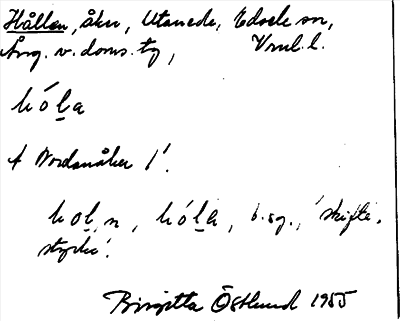 Hållen, åker, Utanede, Edsele sn,
Ång. v. doms. tg, Vml. l.
hóla
A Nordsmåker 1'.
hol, n, hóla, b. sg., 'skifte,
stycke'.
Birgitta Östlund 1955